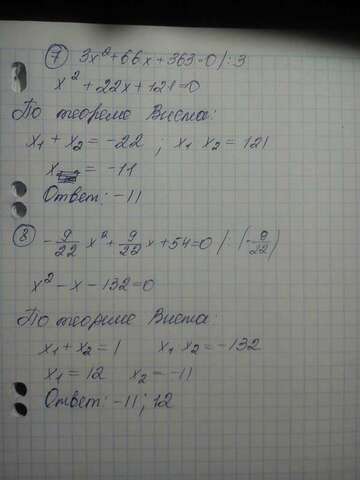 7) 3x² + 66x + 363 = 0 /: 3
x² + 22x + 121 = 0
По теореме Виета:
x₁ + x₂ = -22 ; x₁ x₂ = 121
x = -11
Ответ: -11
8) -9/22 x² + 9/22 x + 54 = 0 /: (-9/22)
x² - x - 132 = 0
По теореме Виета:
x₁ + x₂ = 1 x₁ x₂ = -132
x₁ = 12 x₂ = -11
Ответ: -11; 12